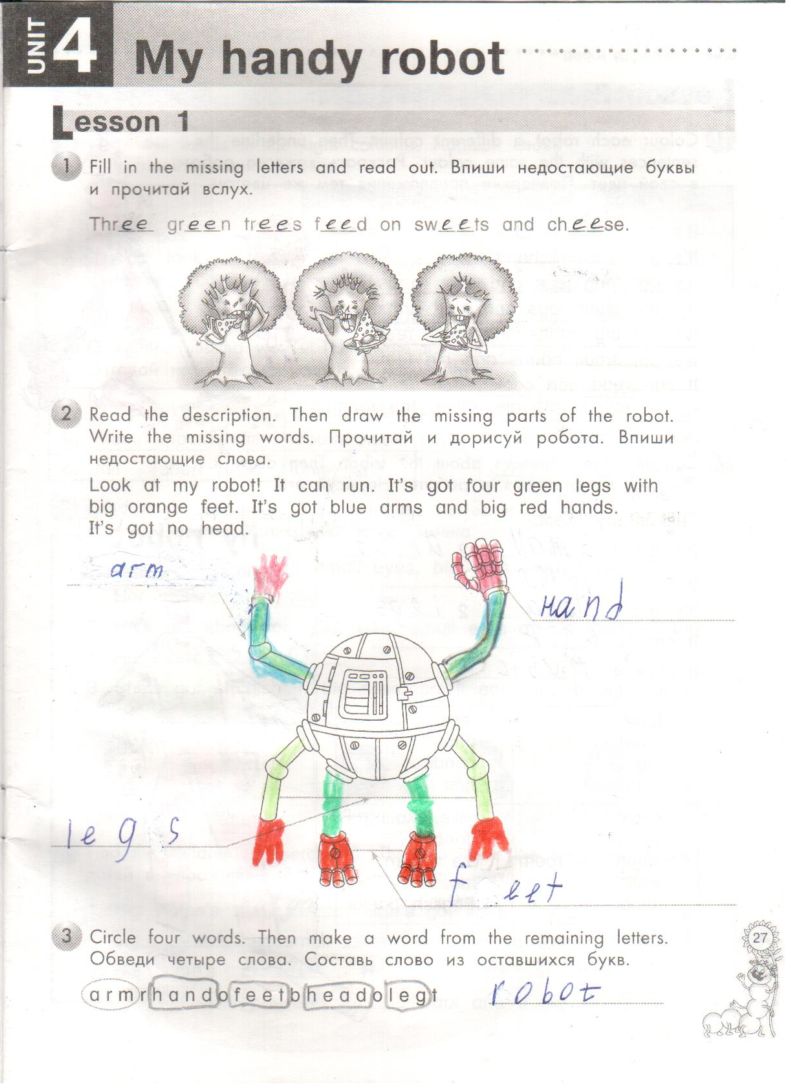 UNIT 4 My handy robot
Lesson 1
1 Fill in the missing letters and read out. Впиши недостающие буквы
и прочитай вслух.
Three green trees feed on sweets and cheese.
2 Read the description. Then draw the missing parts of the robot.
Write the missing words. Прочитай и дорисуй робота. Впиши
недостающие слова.
Look at my robot! It can run. It's got four green legs with
big orange feet. It's got blue arms and big red hands.
It's got no head.
arm
hand
legs
feet
3 Circle four words. Then make a word from the remaining letters.
Обведи четыре слова. Составь слово из оставшихся букв.
armrhandofeetbheadolegt robot
27